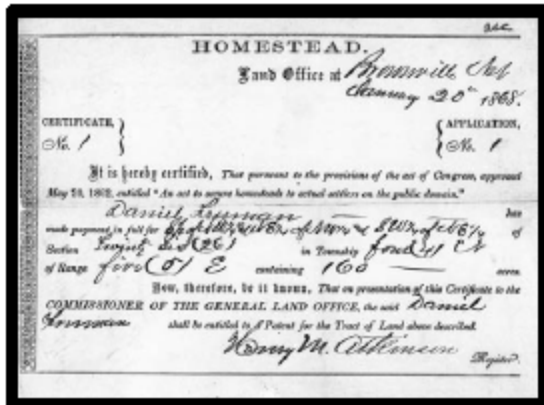 HOMESTEAD.
Land Office at Brownville Neb
January 20th 1868.
CERTIFICATE, No. 1
APPLICATION, No. 1
It is hereby certified, That pursuant to the provisions of the act of Congress, approved
May 20, 1862, entitled "An act to secure homesteads to actual settlers on the public domain,"
Daniel has
made payment in full for of NW¼ & SW¼ of NE¼ of
Section Twenty six (26) in Township four (4) N
of Range five (5) E containing 160 acres.
Now, therefore, be it known, That on presentation of this Certificate to the
COMMISSIONER OF THE GENERAL LAND OFFICE, the said Daniel
shall be entitled to a Patent for the Tract of Land above described.
Henry M. Atkinson
Register.